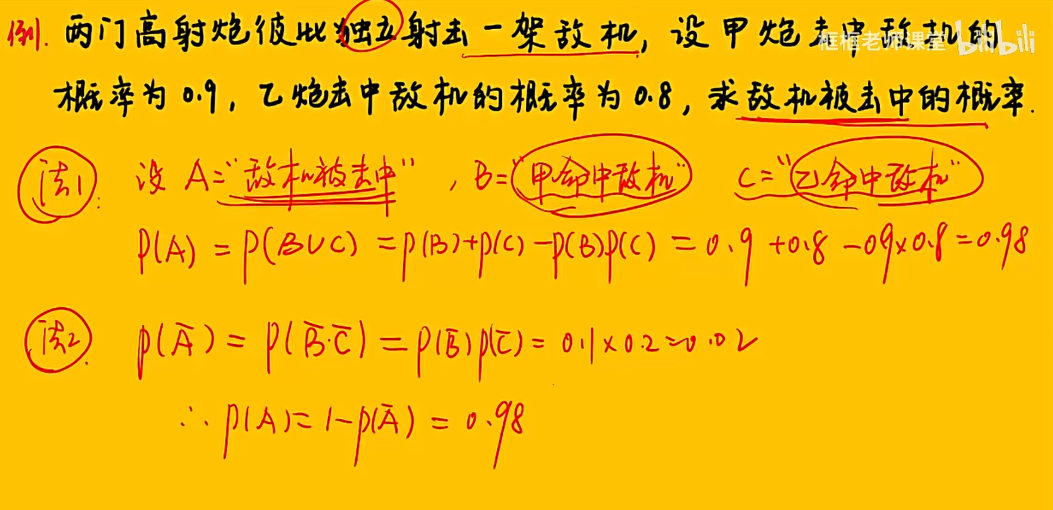 例. 两门高射炮彼此独立射击一架敌机，设甲炮击中敌机的
框框老师课堂 bilibili
概率为 0.9，乙炮击中敌机的概率为 0.8，求敌机被击中的概率.
法1: 设 A="敌机被击中"，B="甲命中敌机" C="乙命中敌机"
P(A) = P(B∪C) = P(B)+P(C)-P(B)P(C) = 0.9+0.8-0.9×0.8=0.98
法2. P(Ā) = P(B̄·C̄) = P(B̄)P(C̄) = 0.1×0.2=0.02
∴ P(A)=1-P(Ā) = 0.98